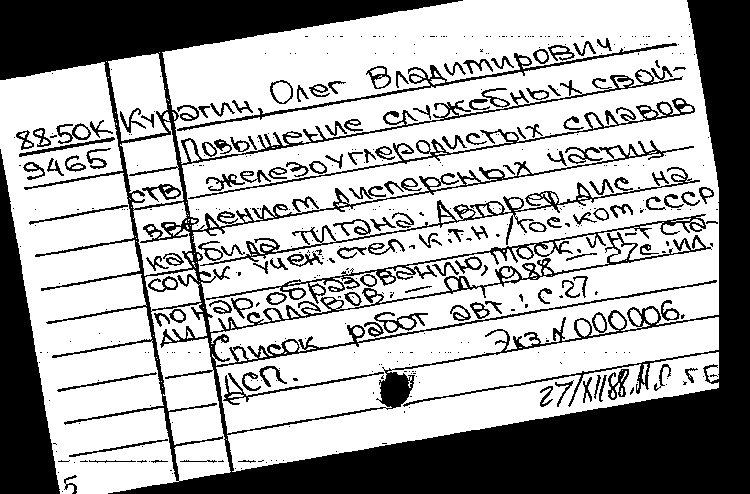 88-50К Курагин, Олег Владимирович.
9465 Повышение служебных свой-
ств железоуглеродистых сплавов
введением дисперсных частиц
карбида титана: Автореф. дис. на
соиск. учен. степ. к.т.н. /Гос. ком. СССР
по нар. образованию, Моск. ин-т ста-
ли и сплавов. — М., 1988. — 27с.: ил.
Список работ авт.: с.27.
ДСП. Экз. N 000006.
27/XII88.
5